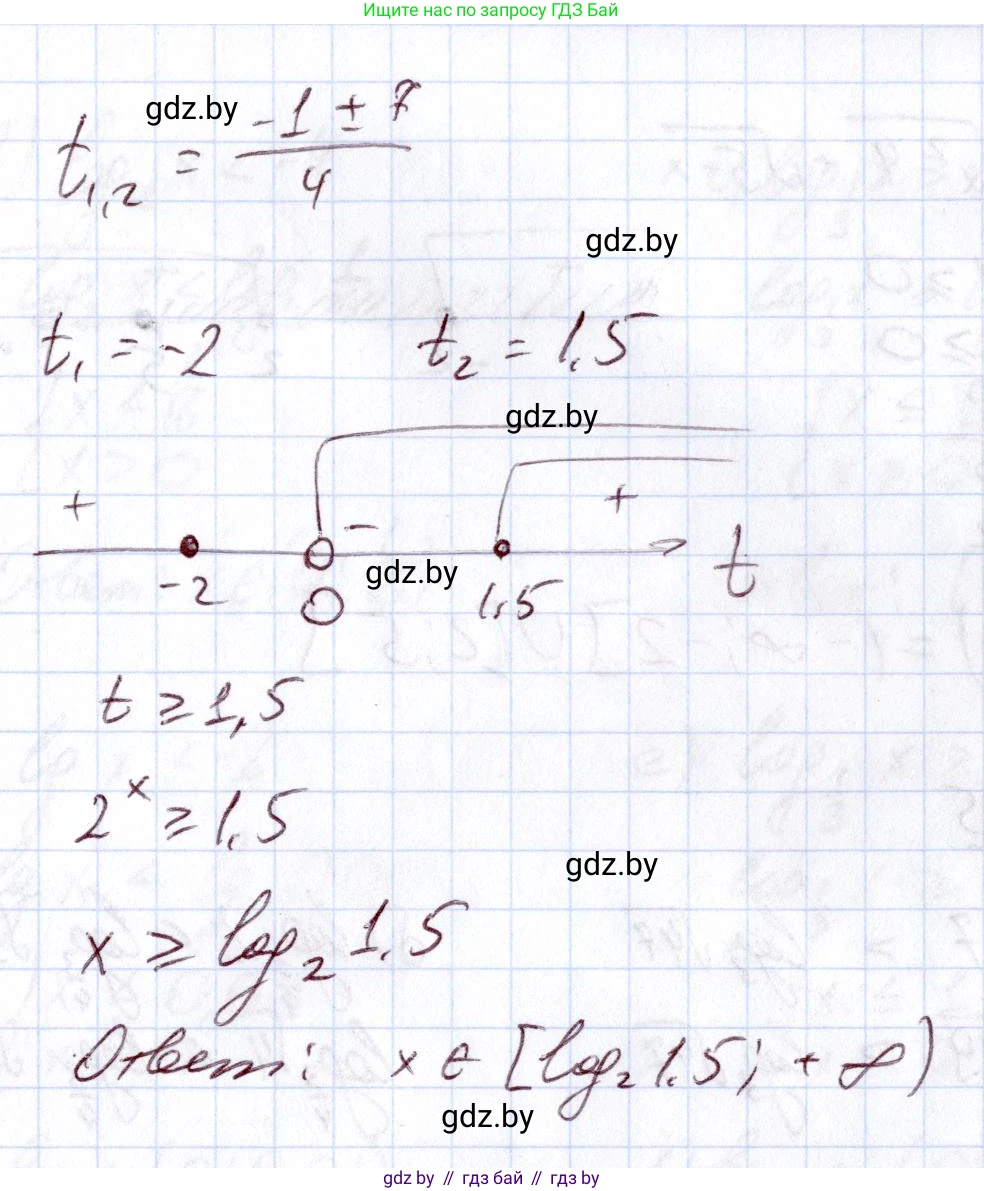 Ищите нас по запросу ГДЗ Бай
gdz.by
t₁,₂ = (-1 ± 7)/4
gdz.by
t₁ = -2 t₂ = 1,5
gdz.by
+ - +
gdz.by
-2 0 1,5 t
t ≥ 1,5
2ˣ ≥ 1,5
gdz.by
x ≥ log₂ 1,5
Ответ: x ∈ [log₂ 1,5; +∞)
gdz.by
gdz.by // гдз бай // гдз by